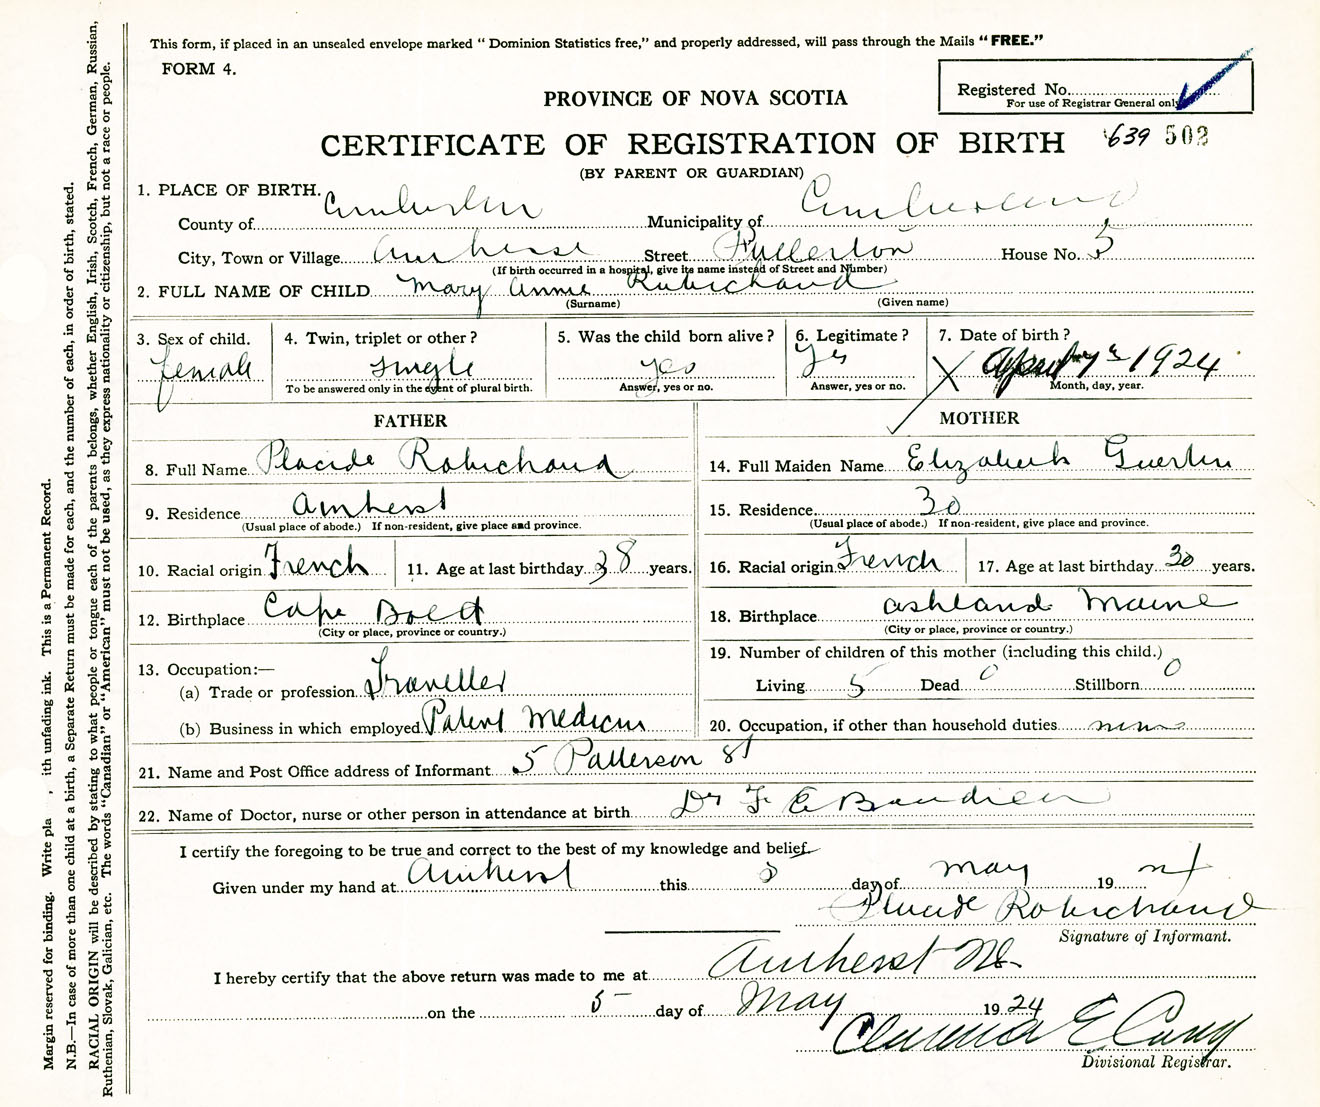 This form, if placed in an unsealed envelope marked “ Dominion Statistics free,” and properly addressed, will pass through the Mails “ FREE.”
FORM 4.
Registered No.
For use of Registrar General only
PROVINCE OF NOVA SCOTIA
CERTIFICATE OF REGISTRATION OF BIRTH 639 502
(BY PARENT OR GUARDIAN)
1. PLACE OF BIRTH.
County of Cumberland Municipality of Cumberland
City, Town or Village Amherst Street Fullerton House No. 5
(If birth occurred in a hospital, give its name instead of Street and Number)
2. FULL NAME OF CHILD Mary Annie Robichaud
(Surname) (Given name)
3. Sex of child. 4. Twin, triplet or other? 5. Was the child born alive? 6. Legitimate? 7. Date of birth?
female single yes yes 1924
To be answered only in the event of plural birth. Answer, yes or no. Answer, yes or no. Month, day, year.
FATHER MOTHER
8. Full Name Placide Robichaud 14. Full Maiden Name Elizabeth Guertin
9. Residence Amherst 15. Residence 30
(Usual place of abode.) If non-resident, give place and province. (Usual place of abode.) If non-resident, give place and province.
10. Racial origin French 11. Age at last birthday 38 years. 16. Racial origin French 17. Age at last birthday 30 years.
12. Birthplace Cape Bald 18. Birthplace Ashland Maine
(City or place, province or country.) (City or place, province or country.)
13. Occupation:— 19. Number of children of this mother (including this child.)
(a) Trade or profession Traveller Living 5 Dead 0 Stillborn 0
(b) Business in which employed Patent Medicin 20. Occupation, if other than household duties none
21. Name and Post Office address of Informant 5 Patterson St
22. Name of Doctor, nurse or other person in attendance at birth Dr F. E.
I certify the foregoing to be true and correct to the best of my knowledge and belief.
Given under my hand at Amherst this 5 day of May 19
Placide Robichaud
Signature of Informant.
I hereby certify that the above return was made to me at Amherst NS.
on the 5 day of May 1924
E
Divisional Registrar.
Margin reserved for binding. Write pla ith unfading ink. This is a Permanent Record.
N.B.—In case of more than one child at a birth, a Separate Return must be made for each, and the number of each, in order of birth, stated.
RACIAL ORIGIN will be described by stating to what people or tongue each of the parents belongs, whether English, Irish, Scotch, French, German, Russian,
Ruthenian, Slovak, Galician, etc. The words “Canadian” or “American” must not be used, as they express nationality or citizenship, but not a race or people.